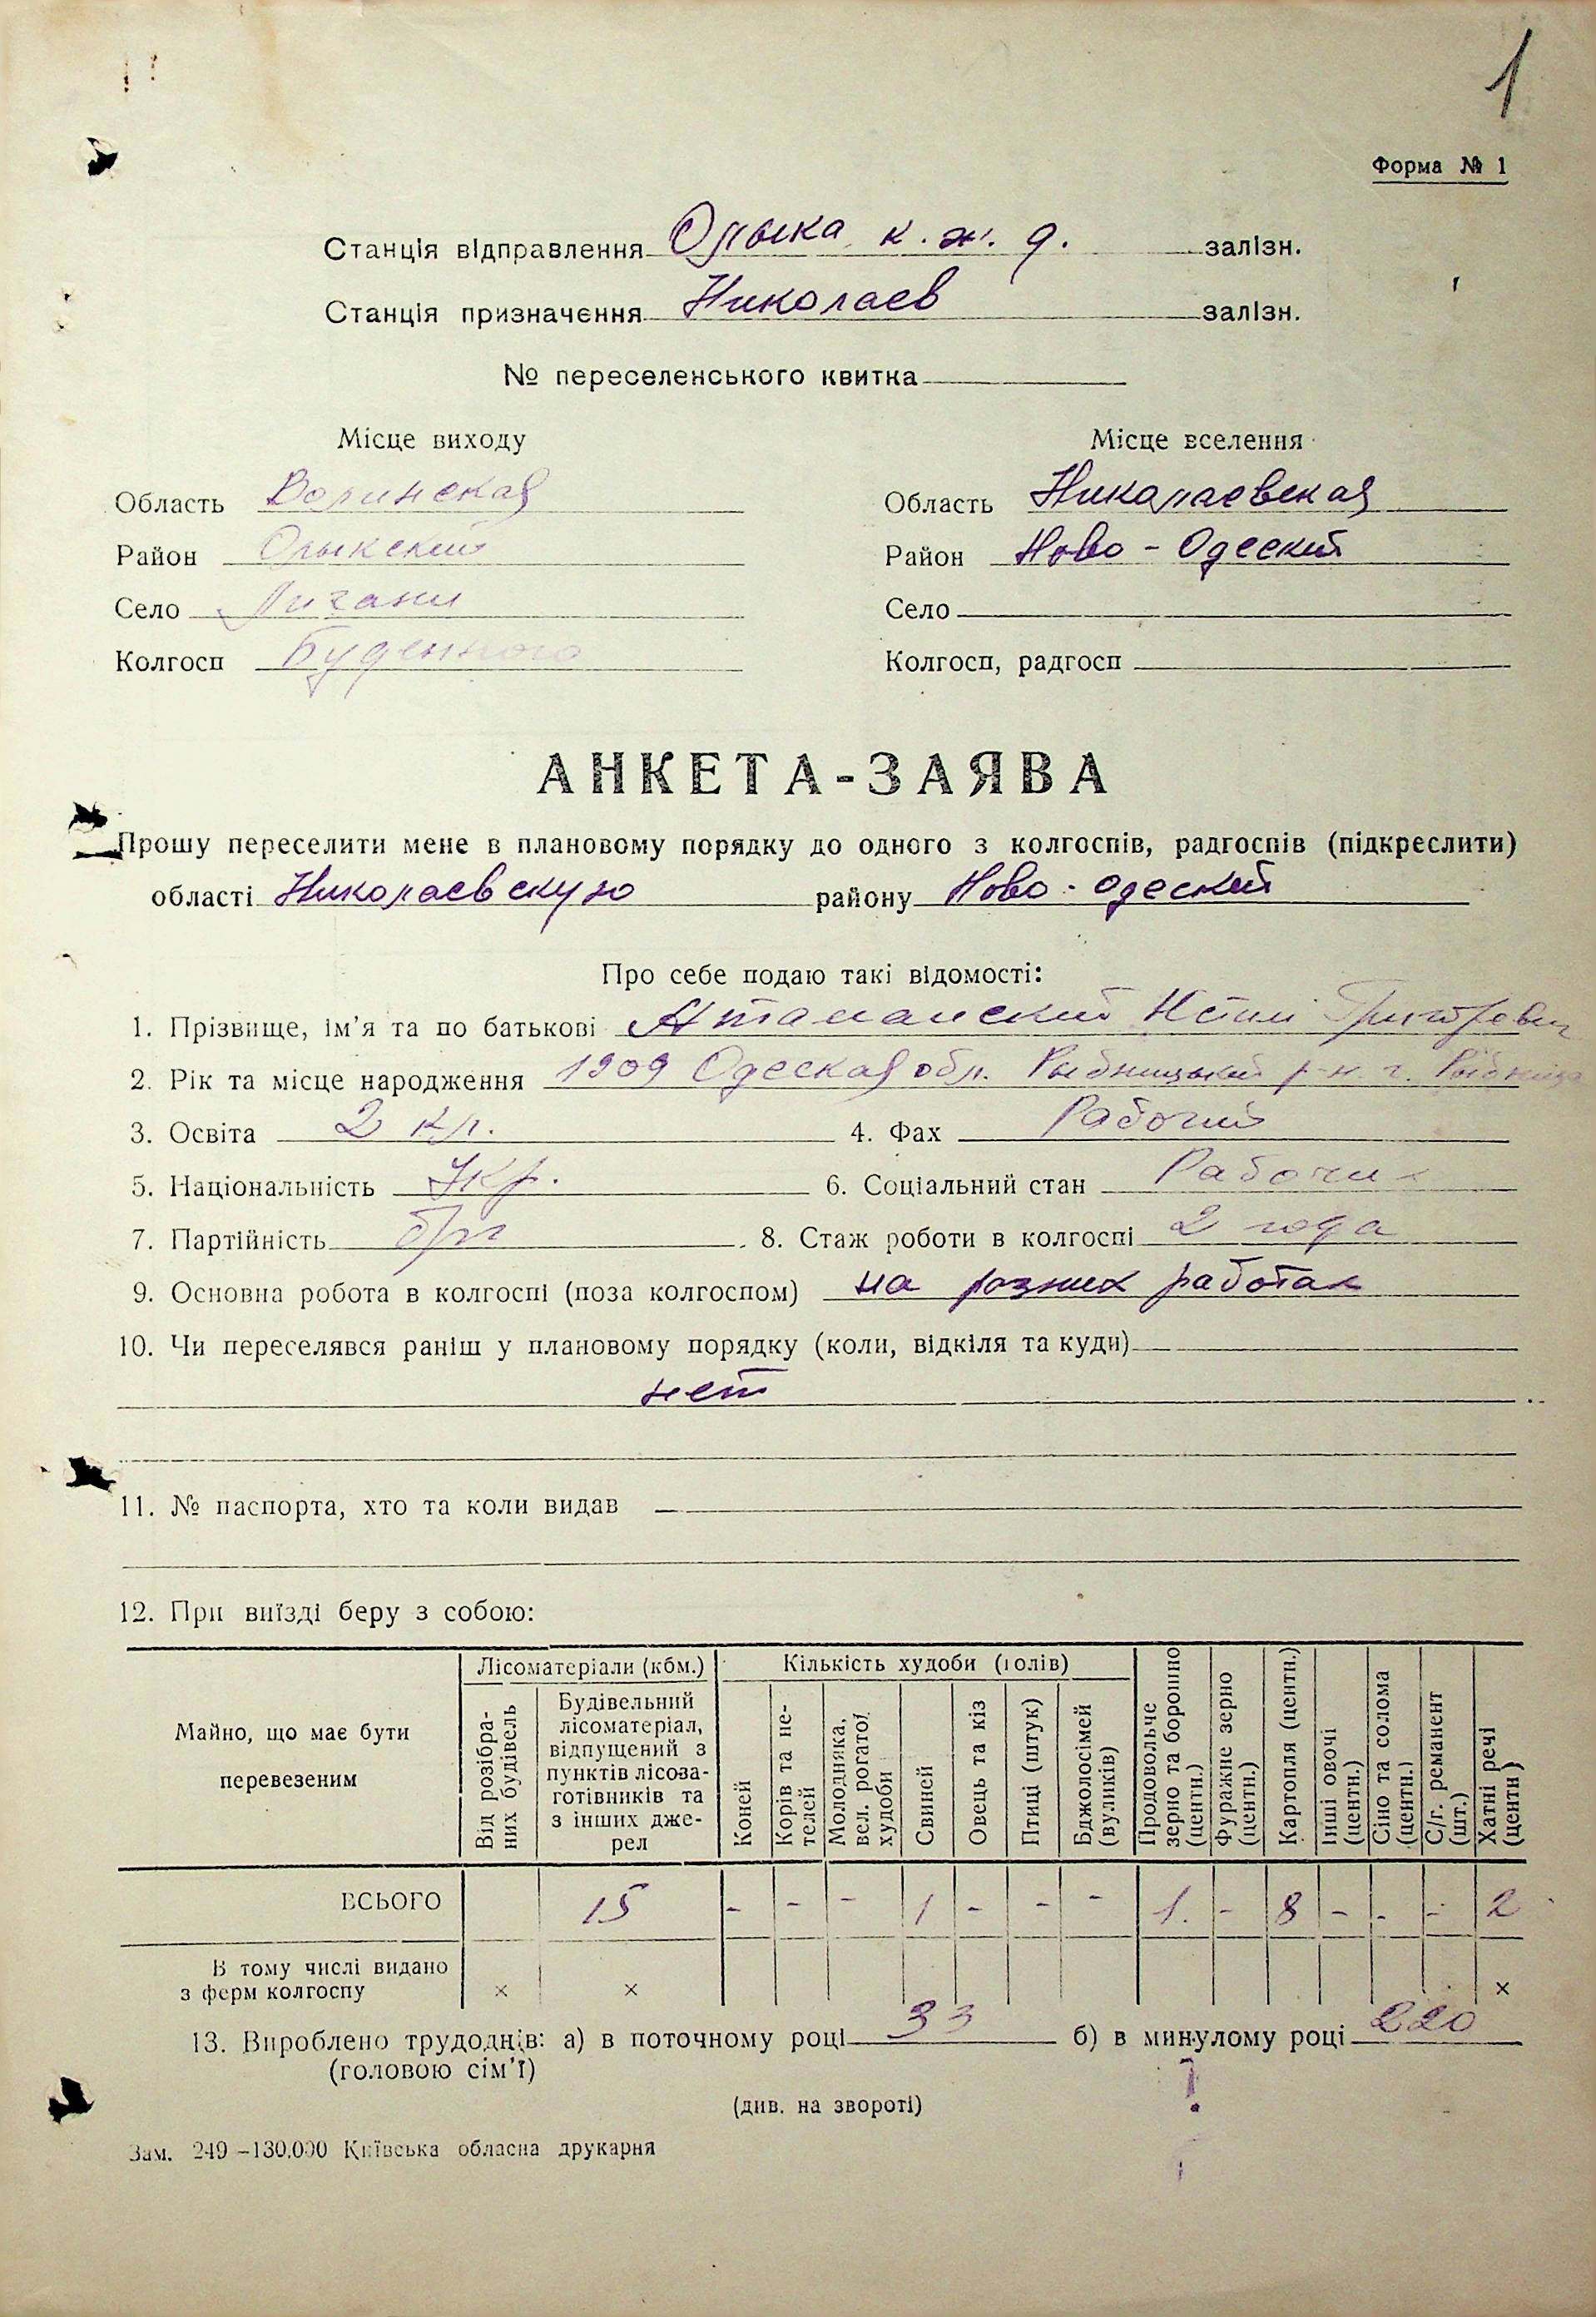 1
Форма № 1
Станція відправлення Олыка к. ж. д. залізн.
Станція призначення Николаев залізн.
№ переселенського квитка
Місце виходу Місце вселення
Область Волинская Область Николаевская
Район Олыкский Район Ново-Одеский
Село Личани Село
Колгосп Буденного Колгосп, радгосп
АНКЕТА-ЗАЯВА
Прошу переселити мене в плановому порядку до одного з колгоспів, радгоспів (підкреслити)
області Николаевскую району Ново-Одеский
Про себе подаю такі відомості:
1. Прізвище, ім'я та по батькові Атаманский Григорович
2. Рік та місце народження 1909 Одеская обл. Рыбницький р-н. г. Рыбница
3. Освіта 2 кл. 4. Фах Рабочий
5. Національність Укр. 6. Соціальний стан Рабочих
7. Партійність б/п 8. Стаж роботи в колгоспі 2 года
9. Основна робота в колгоспі (поза колгоспом) на разних работах
10. Чи переселявся раніш у плановому порядку (коли, відкіля та куди)
нет
11. № паспорта, хто та коли видав
12. При виїзді беру з собою:
Майно, що має бути перевезеним
Лісоматеріали (кбм.)
Від розібраних будівель
Будівельний лісоматеріал, відпущений з пунктів лісоза-готівників та з інших дже-рел
Кількість худоби (голів)
Коней
Корів та не-телей
Молодняка, вел. рогатої худоби
Свиней
Овець та кіз
Птиці (штук)
Бджолосімей (вуликів)
Продовольче зерно та борошно (центн.)
Фуражне зерно (центн.)
Картопля (центн.)
Інші овочі (центн.)
Сіно та солома (центн.)
С/г. реманент (шт.)
Хатні речі (центн)
ВСЬОГО 15 - - - 1 - - - 1. - 8 - - - 2
В тому числі видано з ферм колгоспу × × ×
13. Вироблено трудоднів: а) в поточному році 33 б) в минулому році 220
(головою сім'ї)
(див. на звороті)
Зам. 249-130.000 Київська обласна друкарня